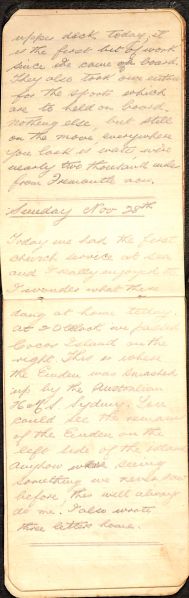 upper deck, today, it
is the first bit of work
since we came on board.
They also took our entries
for the sports which
are to held on board,
nothing else, but still
on the move, everywhere
you look is water, we're
nearly two thousand miles
from Fremantle now.
Sunday Nov 28th
Today we had the first
church service at sea
and I really enjoyed it
I wonder what they're
doing at home today.
At 2 O'Clock we passed
Cocos Island on the
right. This is where
the Emden was smashed
up by the Australian
H.M.S. Sydney. You
could see the remains
of the Emden on the
left side of the island
anyhow seeing
something we never saw
before, this will always
do me. I also wrote
three letters home.